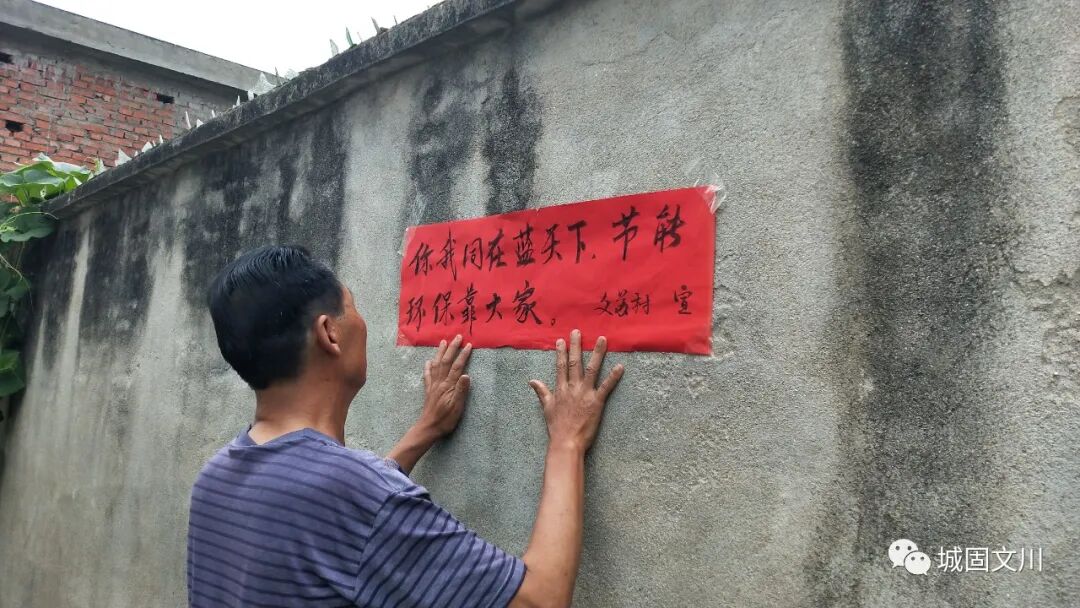 你我同在蓝天下，节能
环保靠大家。 文家村 宣
城固文川